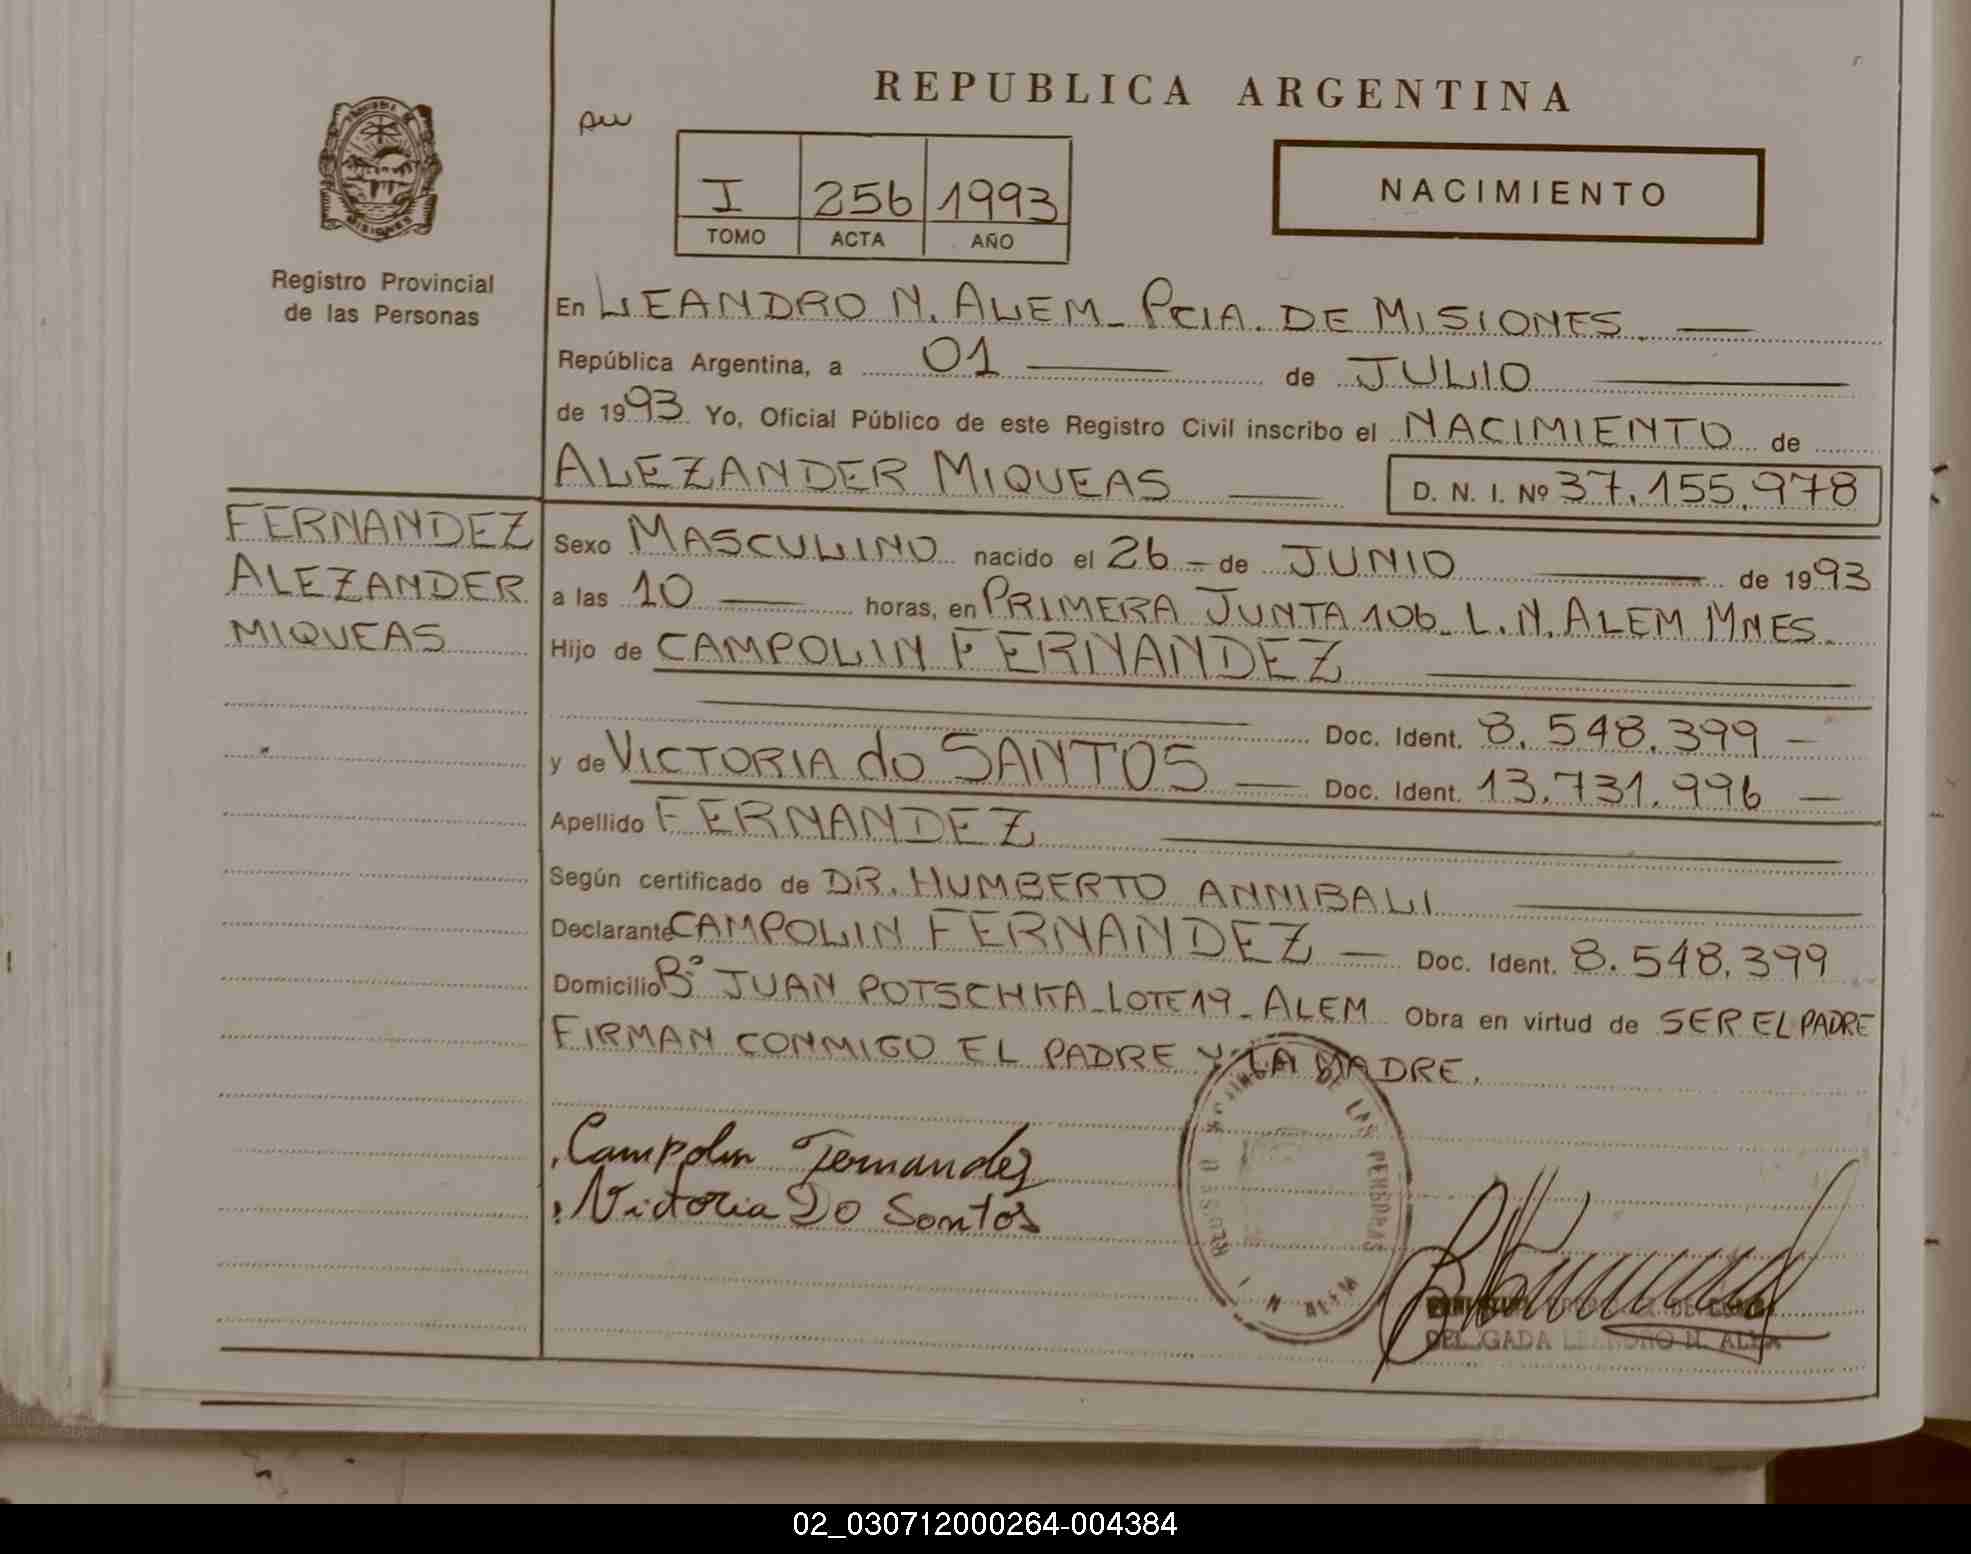 REPUBLICA ARGENTINA
I 256 1993
TOMO ACTA AÑO
NACIMIENTO
MISIONES
Registro Provincial
de las Personas
En LEANDRO N. ALEM - PCIA. DE MISIONES
República Argentina, a 01 de JULIO
de 1993 Yo, Oficial Público de este Registro Civil inscribo el NACIMIENTO de
ALEZANDER MIQUEAS D. N. I. Nº 37.155.978
FERNANDEZ
ALEZANDER
MIQUEAS
Sexo MASCULINO nacido el 26 - de JUNIO de 1993
a las 10 horas, en PRIMERA JUNTA 106 - L. N. ALEM MNES.
Hijo de CAMPOLIN FERNANDEZ
Doc. Ident. 8.548.399 -
y de VICTORIA do SANTOS - Doc. Ident. 13.731.996 -
Apellido FERNANDEZ
Según certificado de DR. HUMBERTO ANNIBALI
Declarante CAMPOLIN FERNANDEZ - Doc. Ident. 8.548.399
Domicilio Bº JUAN POTSCHKA - LOTE 19 - ALEM Obra en virtud de SER EL PADRE
FIRMAN CONMIGO EL PADRE Y LA MADRE.
Campolin Fernandez
Victoria Do Santos
DE LAS PERSONAS
N. ALEM
02_030712000264-004384